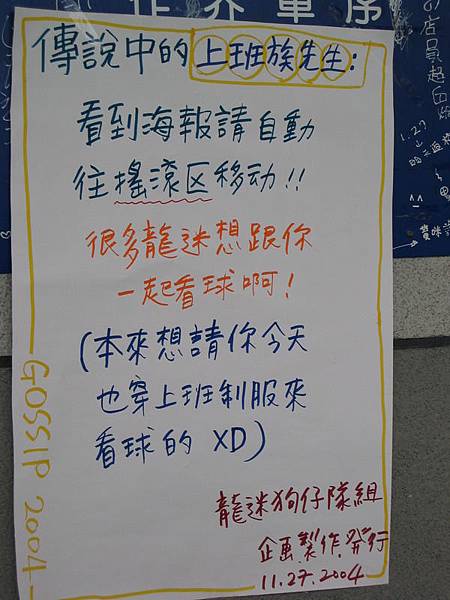 作界單序
傳說中的上班族先生:
看到海報請自動
往搖滾区移动!!
很多龍迷想跟你
一起看球啊!
(本來想請你今天
也穿上班制服來
看球的 XD)
龍迷狗仔隊組
企画製作.発行
11.27.2004
GOSSIP 2004
的店員超白
1.27